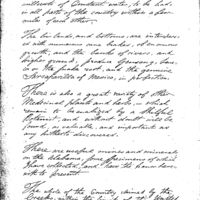 outbreak of Constant water, to be had,
in all parts of the country within a few
miles of each other.
The low lands, and bottoms, are interspers-
ed with numerous cane brakes, of enormous
growth, and the banks of rivers, and
higher grounds, produce
on the lands root, and the genuine
Sarsaparilla of Mexico, in perfection.
There is also a great variety of other
Medicinal plants and herbs, which
remain to be analyzed by a skillful
Botanist, and without doubt will be
found, as valuable, and important as
any hitherto discovered.
There are several mines and minerals
in the Alabama, fine specimens of which
I have collected, and have the honor here-
with to present.
The style of the Country claimed by the
Creeks, within the limits of the United